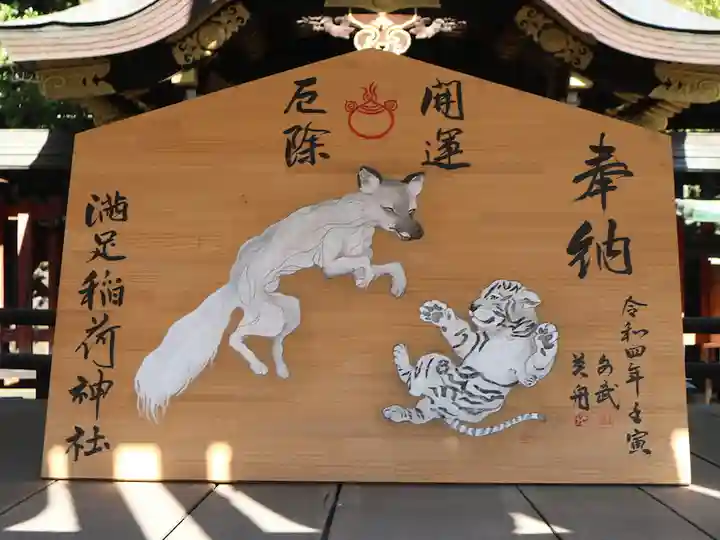 奉納
開運
厄除
満足稲荷神社
令和四年壬寅
英舟